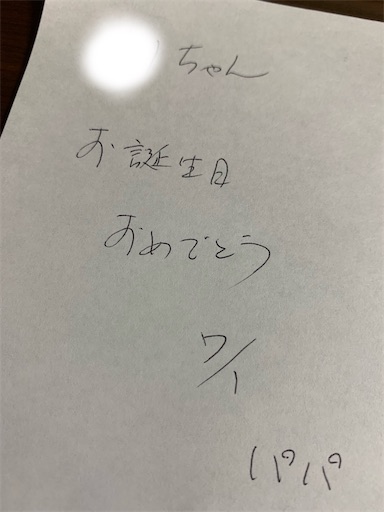 ちゃん
お誕生日
おめでとう
7/1
パパ